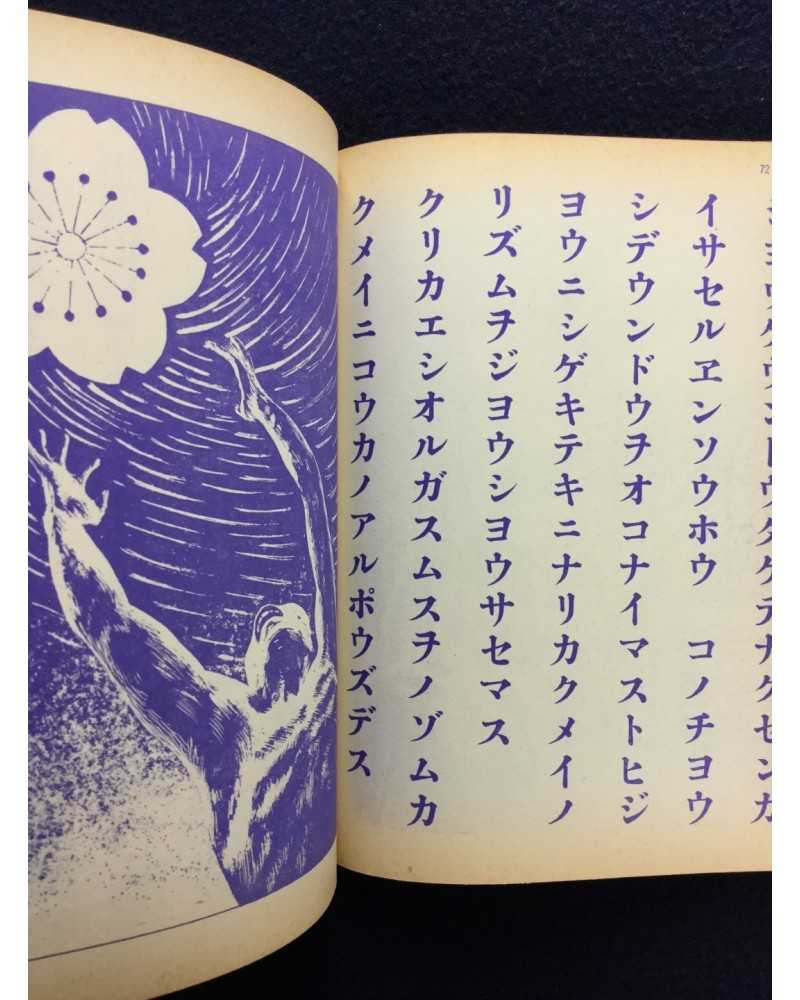 72
ジヨウゲウンドウダケデナクセンカ
イサセルヱンソウホウ　コノチヨウ
シデウンドウヲオコナイマストヒジ
ヨウニシゲキテキニナリカクメイノ
リズムヲジヨウシヨウサセマス
クリカエシオルガスムスヲノゾムカ
クメイニコウカノアルポウズデス